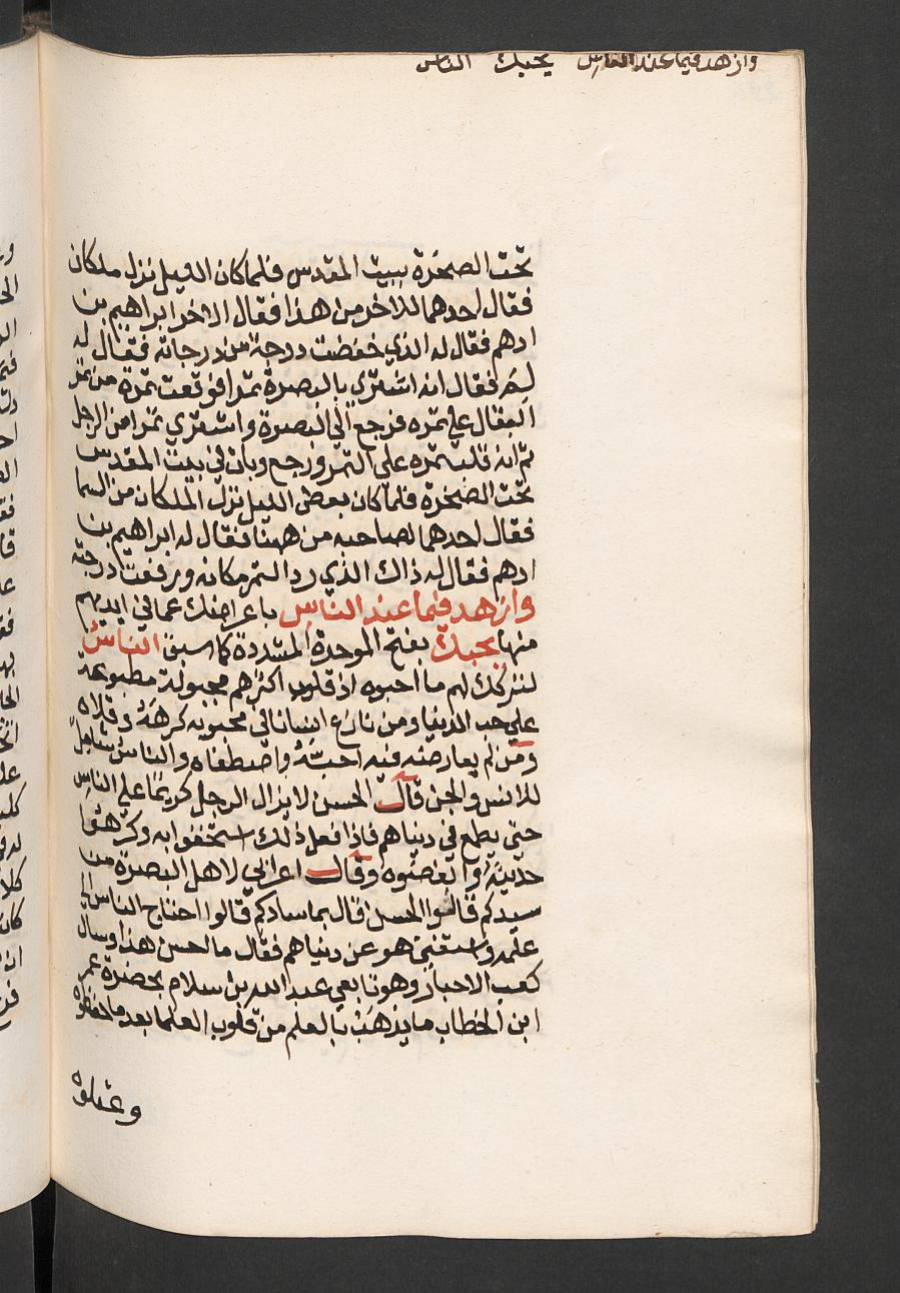 وازهد فيما عند الناس يحبك الناس
تحت الصخرة ببيت المقدس فلما كان الليل نزل ملكان
فقال احدهما للاخر من هذا فقال الاخر ابراهيم بن
ادهم فقال له الذي خفضت درجة من درجاته فقال له
لم فقال انه اشترى بالبصرة تمرا فوقعت تمرة من تمر
البقال على تمره فرجع الى البصرة واشترى تمرا من الرجل
ثم انه قلب تمره على التمر ورجع وبات في بيت المقدس
تحت الصخرة فلما كان بعض الليل نزل الملكان من السما
فقال احدهما لصاحبه من ههنا فقال له ابراهيم بن
ادهم فقال له ذاك الذي رد التمر مكانه ورفعت درجته
وازهد فيما عند الناس باعراضك عما في ايديهم
منها يحبك بفتح الموحدة المشددة كما سبق الناس
لتركك لهم ما احبوه اذ قلوب اكثرهم مجبولة مطبوعة
على حب الدنيا ومن نازع انسانا في محبوبه كرهه وقلاه
ومن لم يعارضه فيه احبه واصطفاه والناس شامل
للانس والجن قال الحسن لا يزال الرجل كريما على الناس
حتى يطمع في دنياهم فاذا فعل ذلك استخفوا به وكرهوا
حديثه وابغضوه وقال اعرابي لاهل البصرة من
سيدكم قالوا الحسن قال بما سادكم قالوا احتاج الناس الى
علمه واستغنى هو عن دنياهم فقال ما احسن هذا وسال
كعب الاحبار وهو تابعي عبد الله بن سلام بحضرة عمر
ابن الخطاب ما يذهب بالعلم من قلوب العلما بعد ما حفظوه
وعقلوه